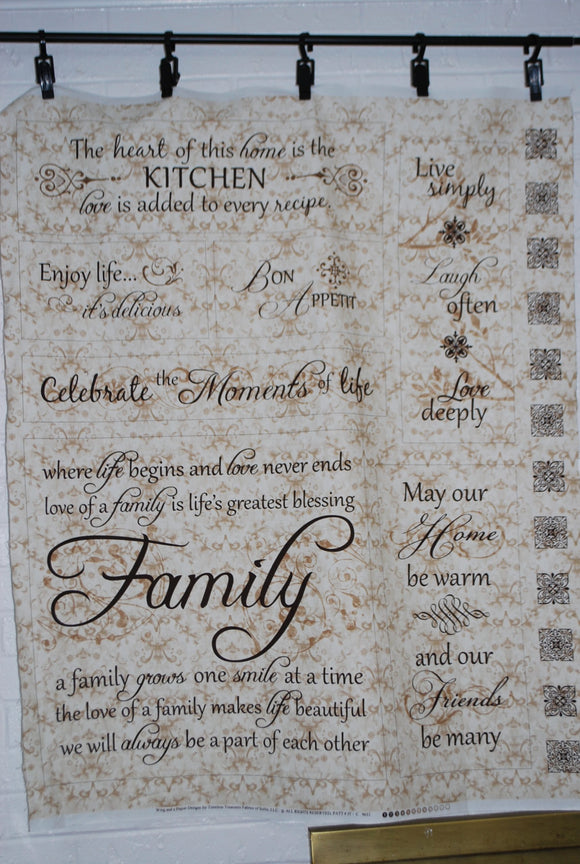 The heart of this home is the
KITCHEN
love is added to every recipe.
Enjoy life...
it's delicious
BON
APPETIT
Celebrate the Moments of life
where life begins and love never ends
love of a family is life's greatest blessing
Family
a family grows one smile at a time
the love of a family makes life beautiful
we will always be a part of each other
Live
simply
Laugh
often
Love
deeply
May our
Home
be warm
and our
Friends
be many